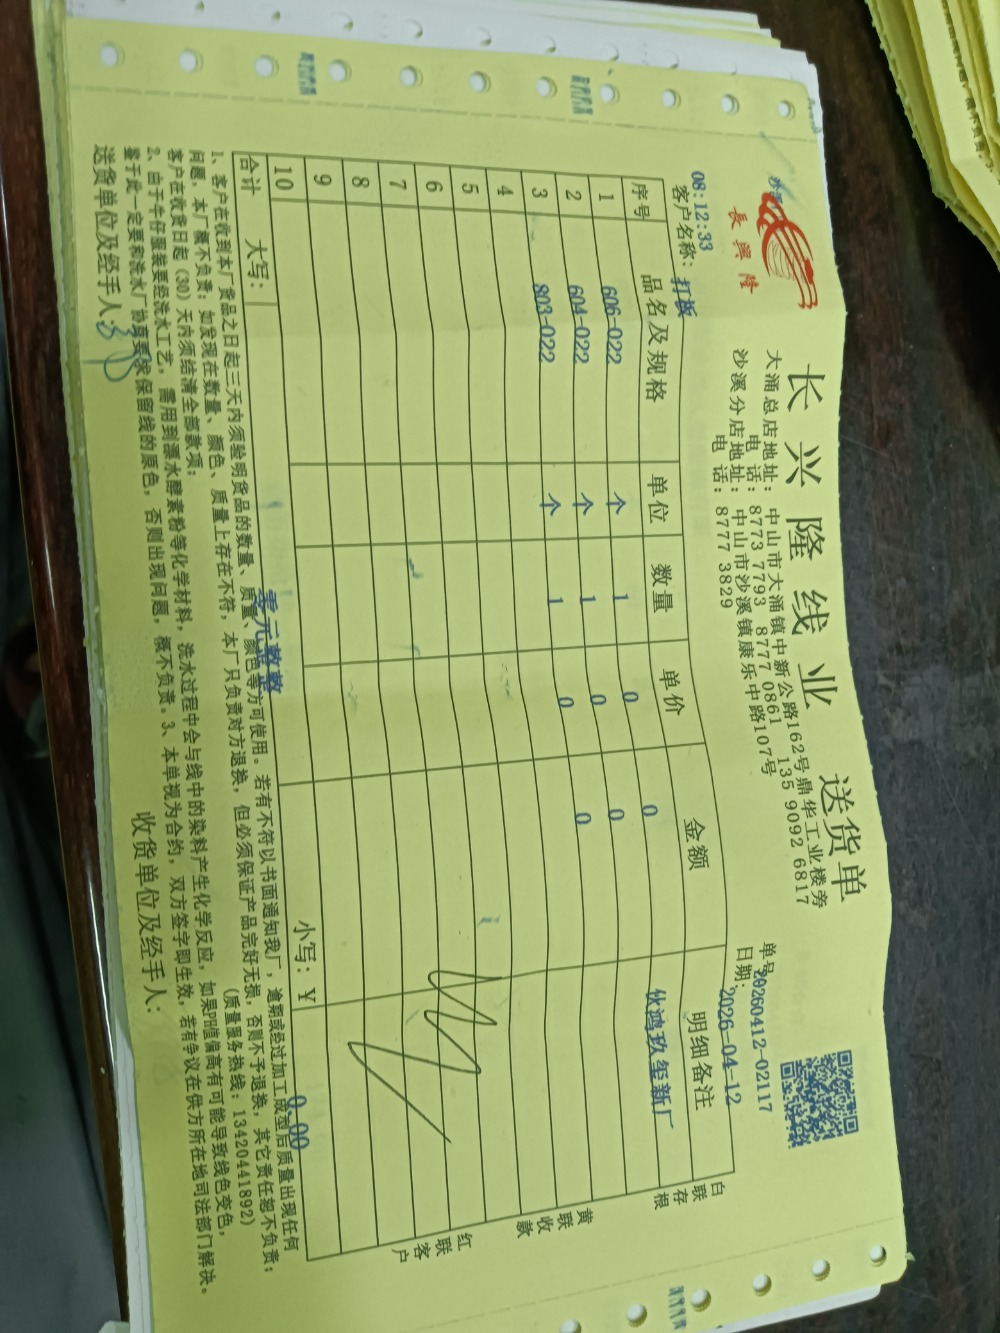 長興隆
长兴隆线业 送货单
大涌总店地址：中山市大涌镇中新公路162号鼎华工业楼旁
电话：8773 7793 8777 0861 135 9092 6817
沙溪分店地址：中山市沙溪镇康乐中路107号
电话：8777 3829
单号：20260412-02117
日期：2026-04-12
08:12:33
客户名称：打板
序号 品名及规格 单位 数量 单价 金额 明细备注
1 606-022 个 1 0 0 伙鸿玖玺新厂
2 604-022 个 1 0 0
3 803-022 个 1 0 0
4
5
6
7
8
9
10
合计 大写：零元整整 小写：￥0.00
1、客户在收到本厂货品之日起三天内须验明货品的数量、质量、颜色等方可使用。若有不符以书面通知我厂，逾期或经过加工成型后质量出现任何
问题，本厂概不负责；如发现在数量、颜色、质量上存在不符，本厂只负责对方退换，但必须保证产品完好无损，否则不予退换，其它责任恕不负责；
客户在收货日起（30）天内须结清全部款项；（质量服务热线：13420441892）
2、由于牛仔服装要经洗水工艺，需用到漂水酵素粉等化学材料，洗水过程中会与线中的染料产生化学反应，如果PH值偏高有可能导致线色变色，
鉴于此一定要和洗水厂协商要求保留线的原色，否则出现问题，概不负责。3、本单视为合约，双方签字即生效，若有争议在供方所在地司法部门解决。
送货单位及经手人：
收货单位及经手人：
白联存根
黄联收款
红联客户